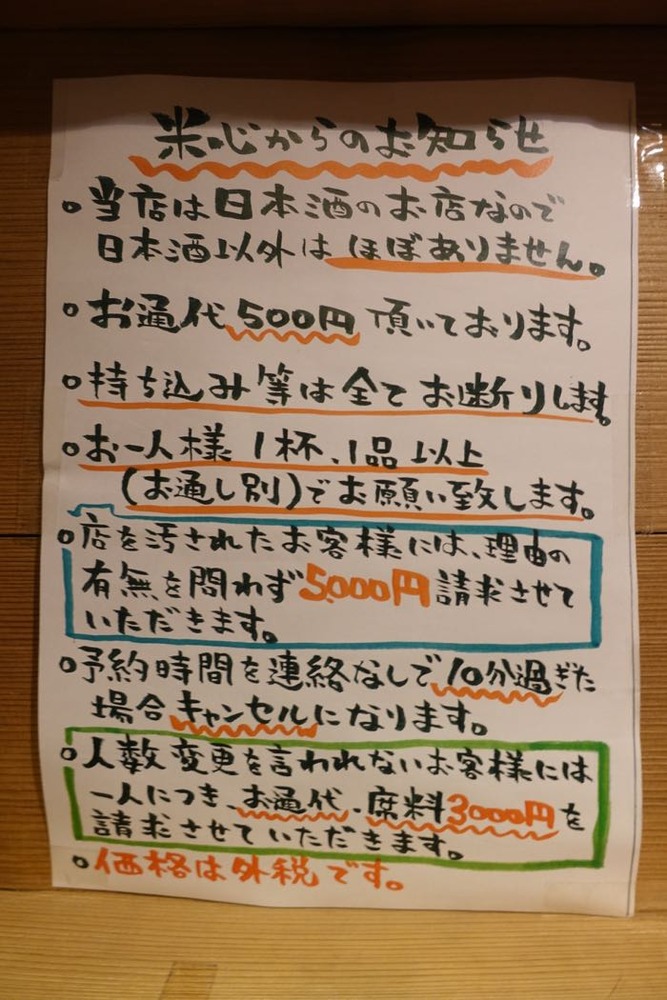 米心からのお知らせ
。当店は日本酒のお店なので
日本酒以外はほぼありません。
。お通代500円頂いております。
。持ち込み等は全てお断りします。
。お一人様1杯、1品以上
(お通し別)でお願い致します。
。店を汚されたお客様には、理由の
有無を問わず5,000円請求させて
いただきます。
。予約時間を連絡なしで10分過ぎた
場合キャンセルになります。
。人数変更を言われないお客様には
一人につき、お通代、席料3000円を
請求させていただきます。
。価格は外税です。